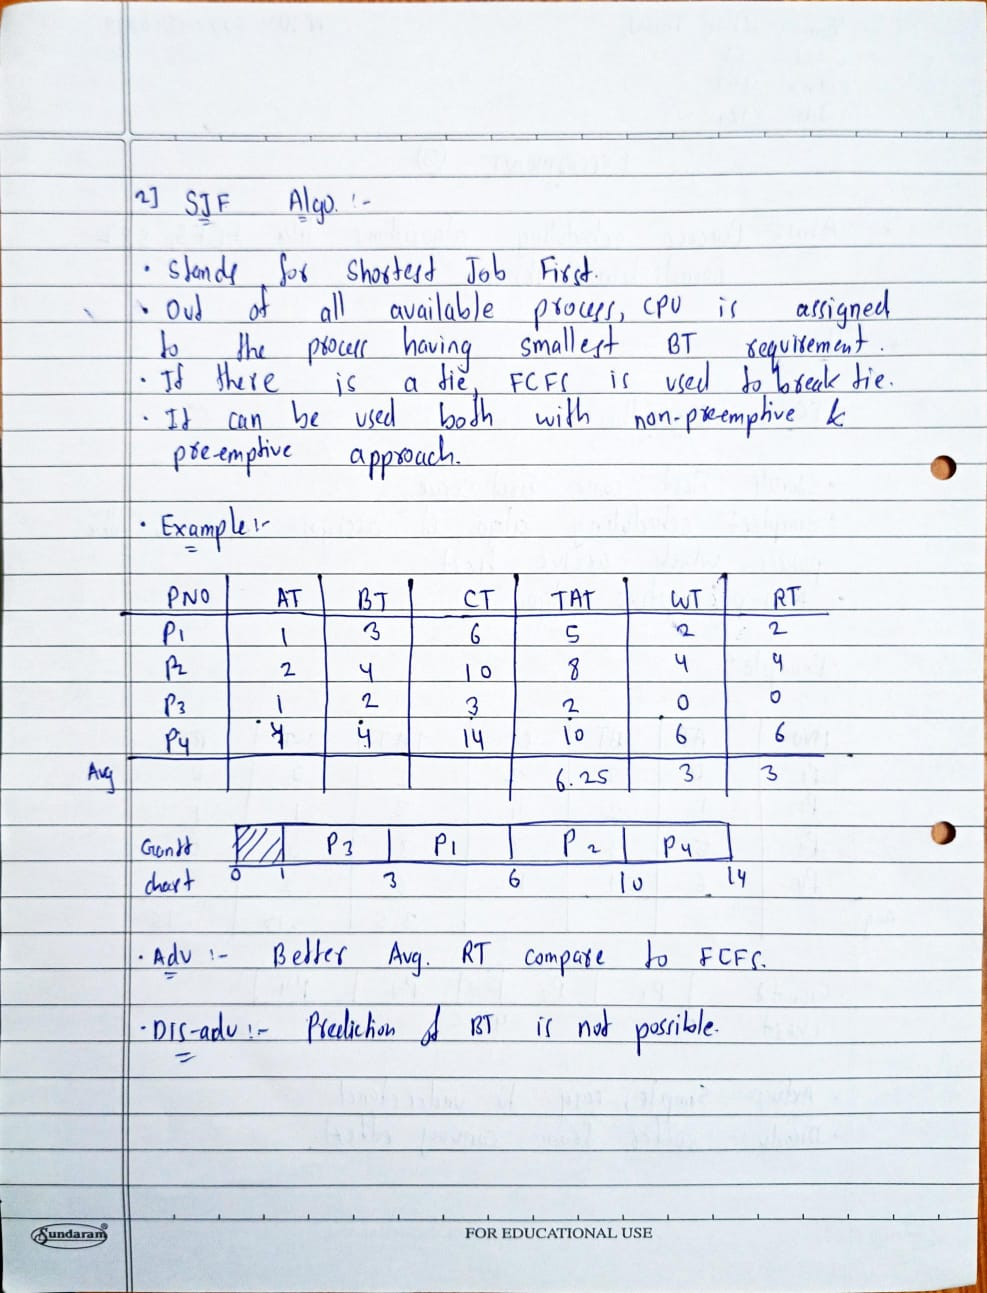 2] SJF Algo. :-
• Stands for Shortest Job First.
• Out of all available process, CPU is assigned
to the process having smallest BT requirement.
• If there is a tie, FCFS is used to break tie.
• It can be used both with non-preemptive &
pre-emptive approach.
• Example :-
PNO AT BT CT TAT WT RT
P1 1 3 6 5 2 2
P2 2 4 10 8 4 4
P3 1 2 3 2 0 0
P4 4 4 14 10 6 6
Avg 6.25 3 3
Gantt chart
P3 P1 P2 P4
0 1 3 6 10 14
• Adv :- Better Avg. RT compare to FCFS.
• DIS-adv :- Prediction of BT is not possible.
Sundaram®
FOR EDUCATIONAL USE